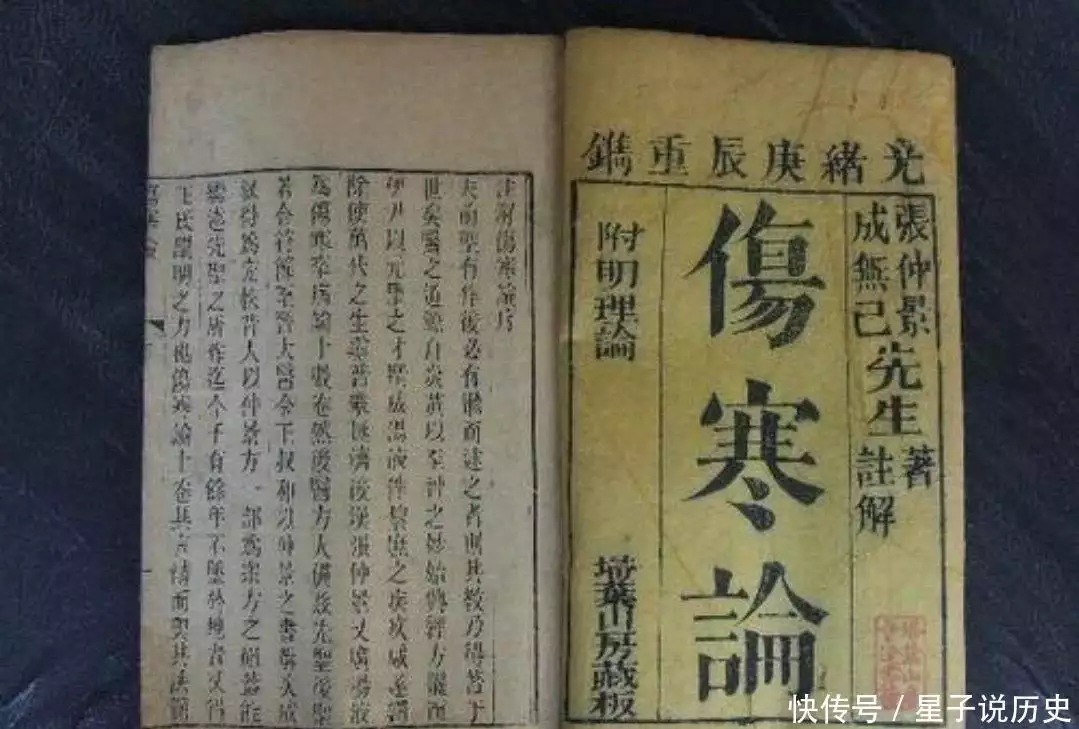 光緒庚辰重鐫
張仲景
成無己
先生
著
註解
傷寒論
附明理論
埽葉山房藏板
註解傷寒論序
夫前聖有作後必有繼而述之者則其教乃得著于
世矣醫之道源自炎黃以至神之妙始興經方繼而
伊尹以元聖之才撰成湯液俾黎庶之疾疢咸遂蠲
除使萬代之生靈普蒙拯濟後漢張仲景又廣湯液
為傷寒卒病論十數卷然後醫方大備茲先聖後聖
若合符節至晉太醫令王叔和以仲景之書撰次成
敘得為完秩昔人以仲景方一部為眾方之祖蓋能
繼述先聖之所作迄今千有餘年不墜於地者又得
王氏闡明之力也傷寒論十卷其言精而奧其法簡
傷寒論
快传号/星子说历史